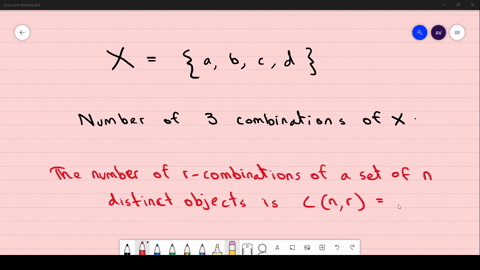 X = {a, b, c, d}
Number of 3 combinations of X.
The number of r-combinations of a set of n
distinct objects is C(n,r) =